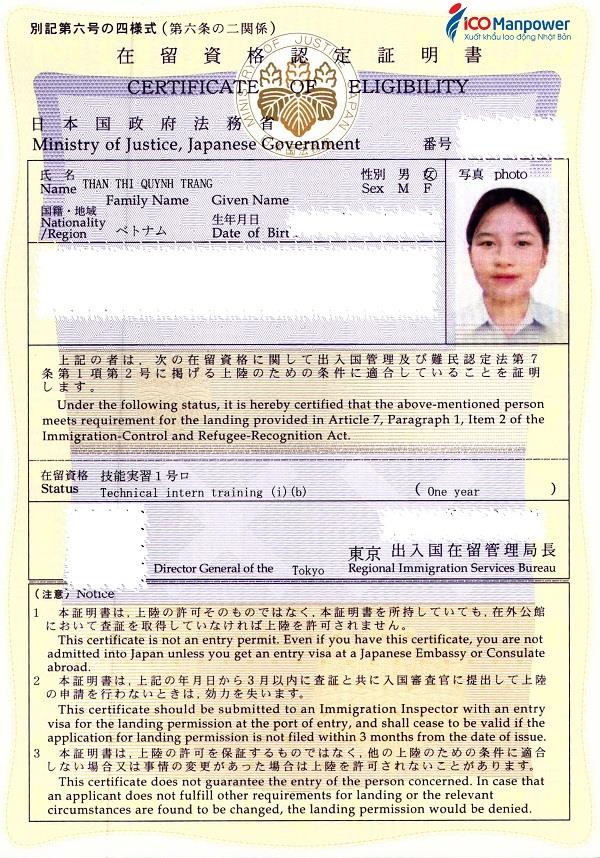 別記第六号の四様式(第六条の二関係)
iCOManpower
Xuất khẩu lao động Nhật Bản
在留資格認定証明書
CERTIFICATE OF ELIGIBILITY
MINISTRY OF JUSTICE JAPAN
日本国政府法務省
Ministry of Justice, Japanese Government 番号
氏名 性別 男 女 写真 photo
Name THAN THI QUYNH TRANG Sex M F
Family Name Given Name
国籍・地域 生年月日
Nationality ベトナム Date of Birt
/Region
上記の者は,次の在留資格に関して出入国管理及び難民認定法第7
条第1項第2号に掲げる上陸のための条件に適合していることを証明
します。
Under the following status, it is hereby certified that the above-mentioned person
meets requirement for the landing provided in Article 7, Paragraph 1, Item 2 of the
Immigration-Control and Refugee-Recognition Act.
在留資格 技能実習1号ロ
Status Technical intern training (i)(b) ( One year )
東京 出入国在留管理局長
Director General of the Tokyo Regional Immigration Services Bureau
(注意) Notice
1 本証明書は,上陸の許可そのものではなく,本証明書を所持していても,在外公館
において査証を取得していなければ上陸を許可されません。
This certificate is not an entry permit. Even if you have this certificate, you are not
admitted into Japan unless you get an entry visa at a Japanese Embassy or Consulate
abroad.
2 本証明書は,上記の年月日から3月以内に査証と共に入国審査官に提出して上陸
の申請を行わないときは,効力を失います。
This certificate should be submitted to an Immigration Inspector with an entry
visa for the landing permission at the port of entry, and shall cease to be valid if the
application for landing permission is not filed within 3 months from the date of issue.
3 本証明書は,上陸の許可を保証するものではなく,他の上陸のための条件に適合
しない場合又は事情の変更があった場合は上陸を許可されないことがあります。
This certificate does not guarantee the entry of the person concerned. In case that
an applicant does not fulfill other requirements for landing or the relevant
circumstances are found to be changed, the landing permission would be denied.